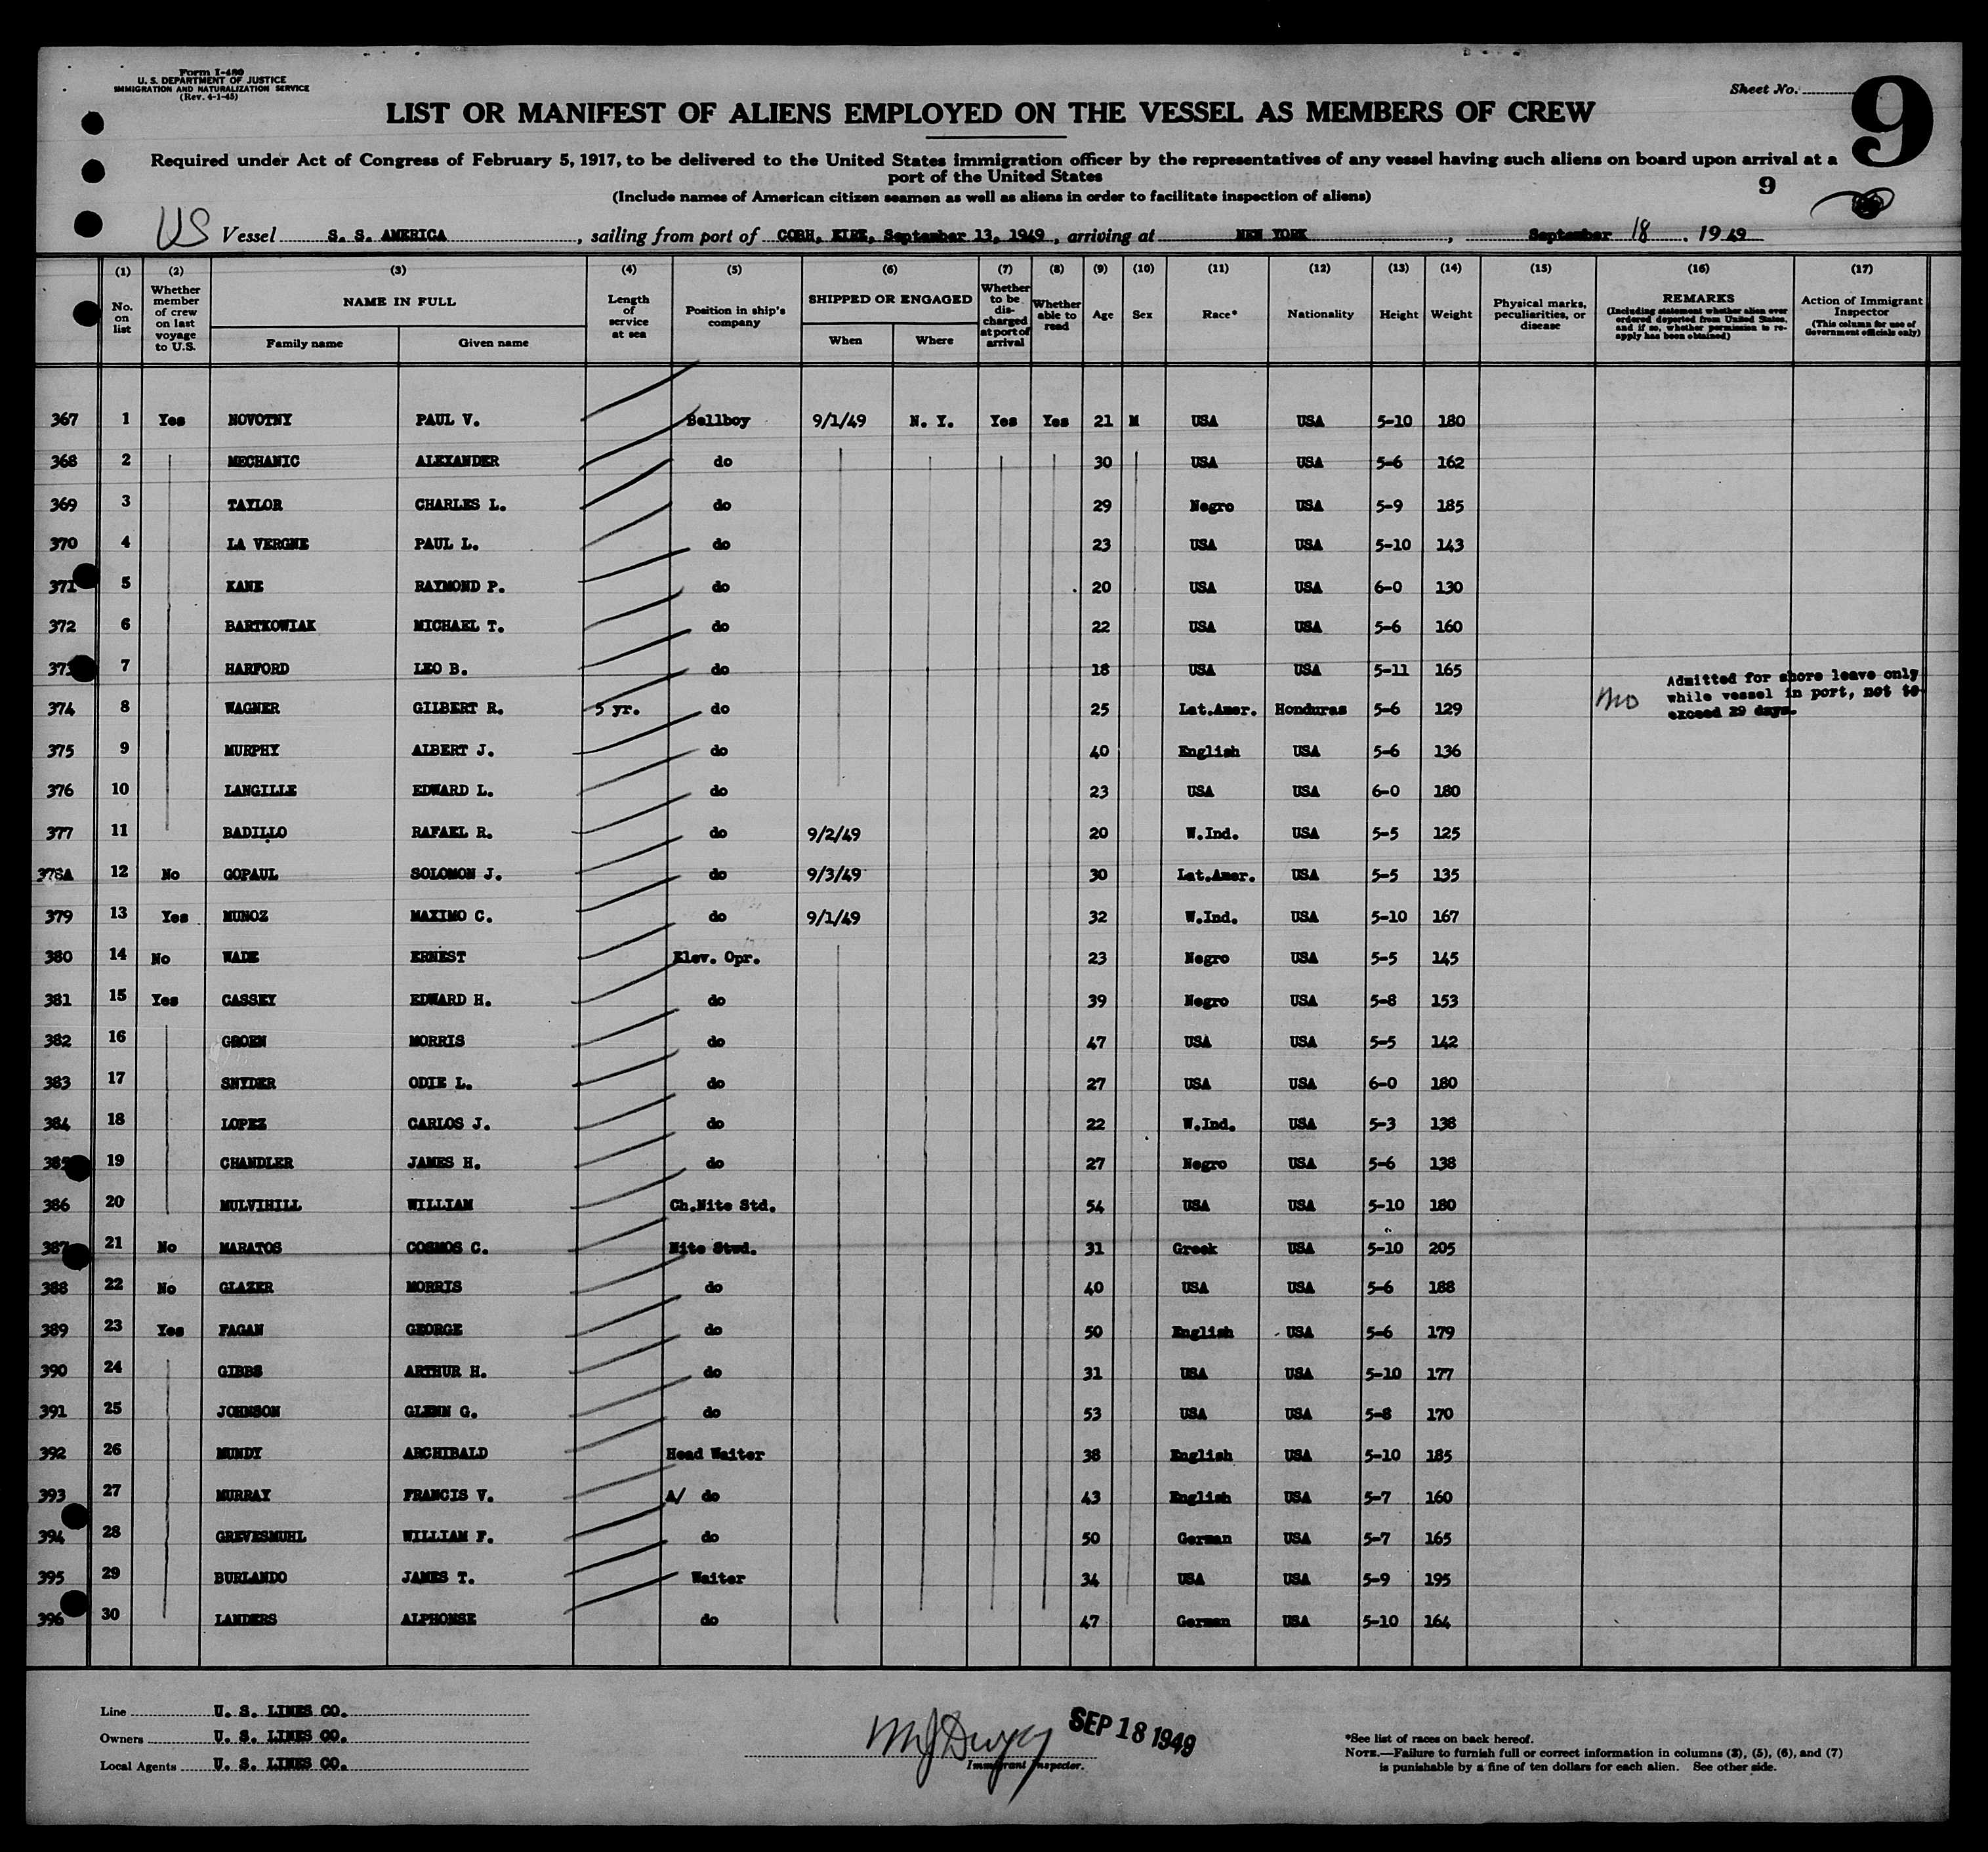 Form I-480
U. S. DEPARTMENT OF JUSTICE
IMMIGRATION AND NATURALIZATION SERVICE
(Rev. 4-1-45)
Sheet No. 9
LIST OR MANIFEST OF ALIENS EMPLOYED ON THE VESSEL AS MEMBERS OF CREW
Required under Act of Congress of February 5, 1917, to be delivered to the United States immigration officer by the representatives of any vessel having such aliens on board upon arrival at a
port of the United States
9
(Include names of American citizen seamen as well as aliens in order to facilitate inspection of aliens)
US Vessel S. S. AMERICA, sailing from port of COBH, EIRE, September 13, 1949, arriving at NEW YORK, September 18, 1949
(1) (2) (3) (4) (5) (6) (7) (8) (9) (10) (11) (12) (13) (14) (15) (16) (17)
No. on list Whether member of crew on last voyage to U.S. NAME IN FULL Family name Given name Length of service at sea Position in ship's company SHIPPED OR ENGAGED When Where Whether to be discharged at port of arrival Whether able to read Age Sex Race* Nationality Height Weight Physical marks, peculiarities, or disease REMARKS (Including statement whether alien ever ordered deported from United States, and if so, whether permission to reapply has been obtained) Action of Immigrant Inspector (This column for use of Government officials only)
367 1 Yes NOVOTNY PAUL V. Bellboy 9/1/49 N. Y. Yes Yes 21 M USA USA 5-10 180
368 2 MECHANIC ALEXANDER do 30 USA USA 5-6 162
369 3 TAYLOR CHARLES L. do 29 Negro USA 5-9 185
370 4 LA VERGNE PAUL L. do 23 USA USA 5-10 143
371 5 KANE RAYMOND P. do 20 USA USA 6-0 130
372 6 BARTKOWIAK MICHAEL T. do 22 USA USA 5-6 160
373 7 HARFORD LEO B. do 18 USA USA 5-11 165
374 8 WAGNER GILBERT R. 5 yr. do 25 Lat.Amer. Honduras 5-6 129 no Admitted for shore leave only while vessel in port, not to exceed 29 days.
375 9 MURPHY ALBERT J. do 40 English USA 5-6 136
376 10 LANGILLE EDWARD L. do 23 USA USA 6-0 180
377 11 BADILLO RAFAEL R. do 9/2/49 20 W.Ind. USA 5-5 125
378A 12 No GOPAUL SOLOMON J. do 9/3/49 30 Lat.Amer. USA 5-5 135
379 13 Yes MUNOZ MAXIMO C. do 9/1/49 32 W.Ind. USA 5-10 167
380 14 No WADE ERNEST Elev. Opr. 23 Negro USA 5-5 145
381 15 Yes CASSEY EDWARD H. do 39 Negro USA 5-8 153
382 16 GROEN MORRIS do 47 USA USA 5-5 142
383 17 SNYDER ODIE L. do 27 USA USA 6-0 180
384 18 LOPEZ CARLOS J. do 22 W.Ind. USA 5-3 138
385 19 CHANDLER JAMES H. do 27 Negro USA 5-6 138
386 20 MULVIHILL WILLIAM Ch.Nite Std. 54 USA USA 5-10 180
387 21 No MARATOS COSMOS C. Nite Stwd. 31 Greek USA 5-10 205
388 22 No GLAZER MORRIS do 40 USA USA 5-6 188
389 23 Yes FAGAN GEORGE do 50 English USA 5-6 179
390 24 GIBBS ARTHUR H. do 31 USA USA 5-10 177
391 25 JOHNSON GLENN G. do 53 USA USA 5-8 170
392 26 MUNDY ARCHIBALD Head Waiter 38 English USA 5-10 185
393 27 MURRAY FRANCIS V. A/ do 43 English USA 5-7 160
394 28 GREVESMUHL WILLIAM F. do 50 German USA 5-7 165
395 29 BURLANDO JAMES T. Waiter 34 USA USA 5-9 195
396 30 LANDERS ALPHONSE do 47 German USA 5-10 164
Line U. S. LINES CO.
Owners U. S. LINES CO.
Local Agents U. S. LINES CO.
SEP 18 1949
Immigrant Inspector.
*See list of races on back hereof.
NOTE.—Failure to furnish full or correct information in columns (3), (5), (6), and (7)
is punishable by a fine of ten dollars for each alien. See other side.